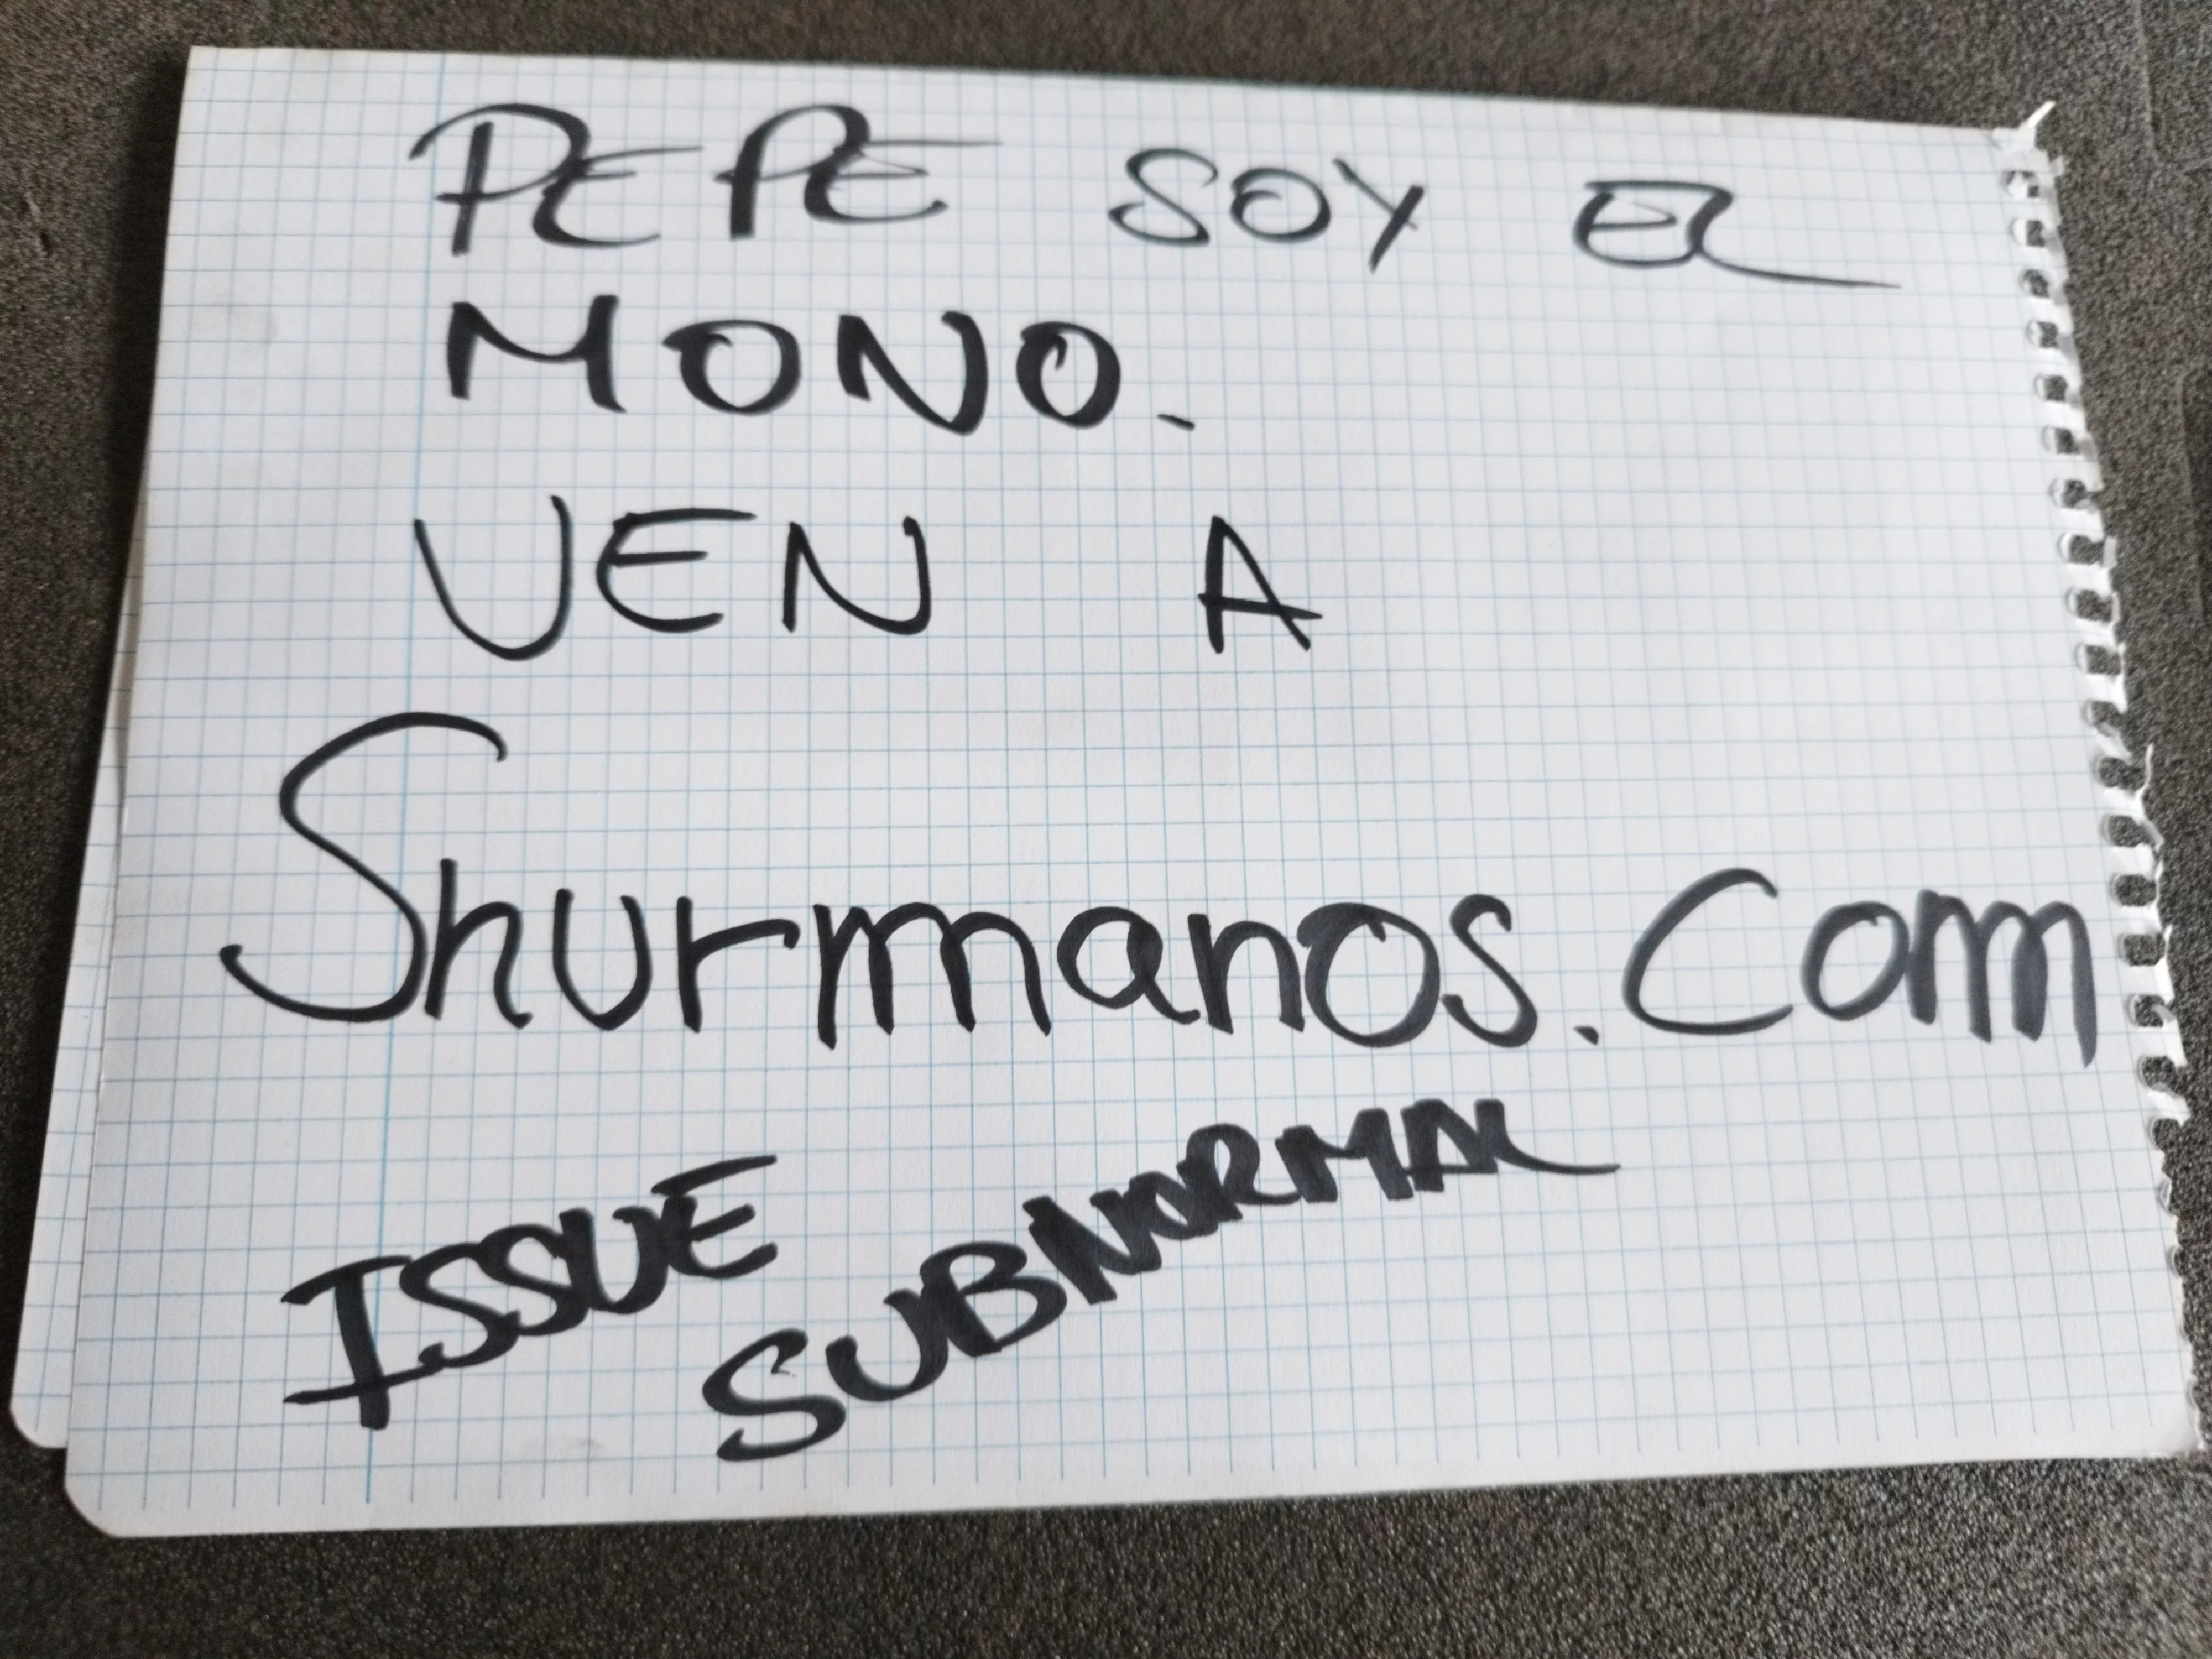 PEPE SOY EL
MONO.
VEN A
Shurmanos.Com
ISSUE
SUBNORMAL